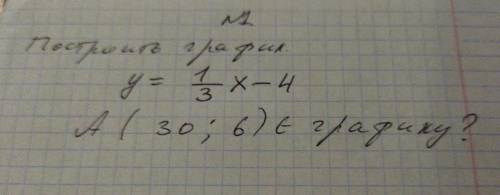 №1
Построить график
y = 1/3 x - 4
A ( 30 ; 6 ) ∈ графику?